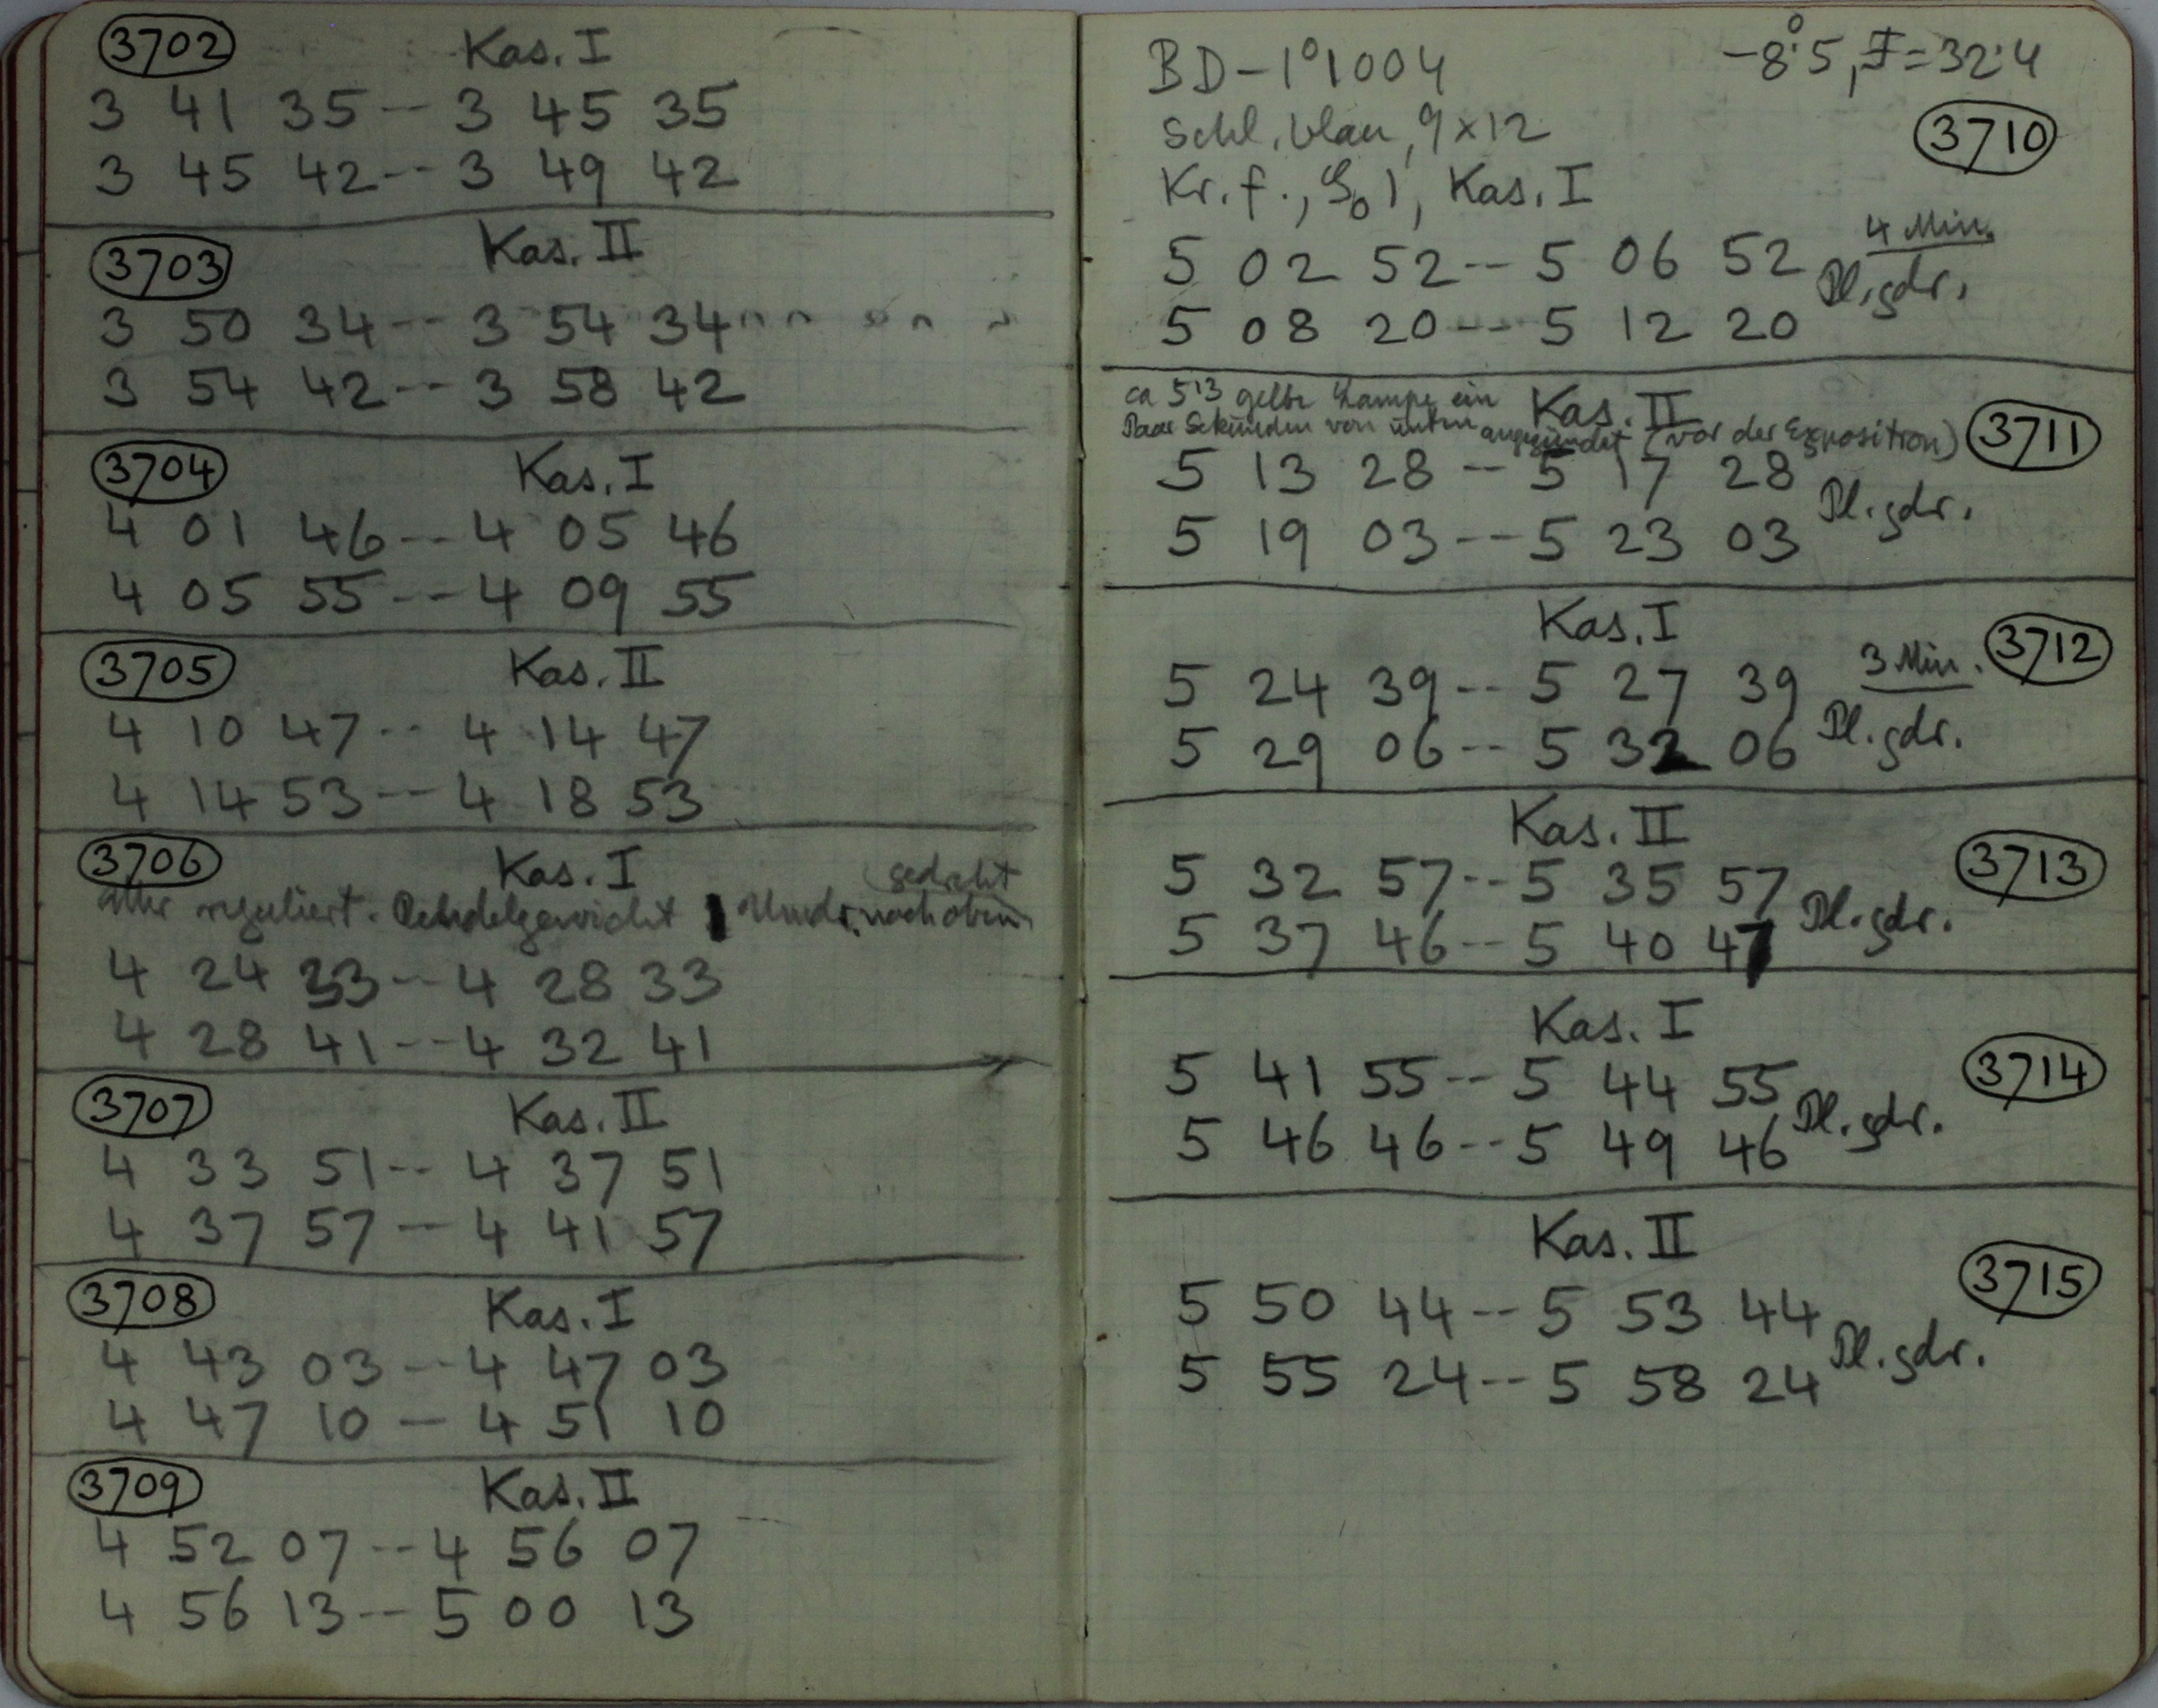 3702 Kas. I
3 41 35 -- 3 45 35
3 45 42 -- 3 49 42
3703 Kas. II
3 50 34 -- 3 54 34
3 54 42 -- 3 58 42
3704 Kas. I
4 01 46 -- 4 05 46
4 05 55 -- 4 09 55
3705 Kas. II
4 10 47 -- 4 14 47
4 14 53 -- 4 18 53
3706 Kas. I
gedreht
reguliert. Pendelgewicht Umdr. nach oben
4 24 33 -- 4 28 33
4 28 41 -- 4 32 41
3707 Kas. II
4 33 51 -- 4 37 51
4 37 57 -- 4 41 57
3708 Kas. I
4 43 03 -- 4 47 03
4 47 10 -- 4 51 10
3709 Kas. II
4 52 07 -- 4 56 07
4 56 13 -- 5 00 13
BD -1°1004 -8°.5, I = 32.4
Schl. blau, 9 x 12 3710
Kr. f., Kas. I
4 Min.
5 02 52 -- 5 06 52 Pl. gdr.
5 08 20 -- 5 12 20
ca 5 13 gelbe Lampe ein Kas. II
Paar Sekunden von unten angezündet (vor der Exposition) 3711
5 13 28 -- 5 17 28 Pl. gdr.
5 19 03 -- 5 23 03
Kas. I
3 Min. 3712
5 24 39 -- 5 27 39
5 29 06 -- 5 32 06 Pl. gdr.
Kas. II
5 32 57 -- 5 35 57 3713
5 37 46 -- 5 40 47 Pl. gdr.
Kas. I
5 41 55 -- 5 44 55 3714
5 46 46 -- 5 49 46 Pl. gdr.
Kas. II
5 50 44 -- 5 53 44 3715
5 55 24 -- 5 58 24 Pl. gdr.